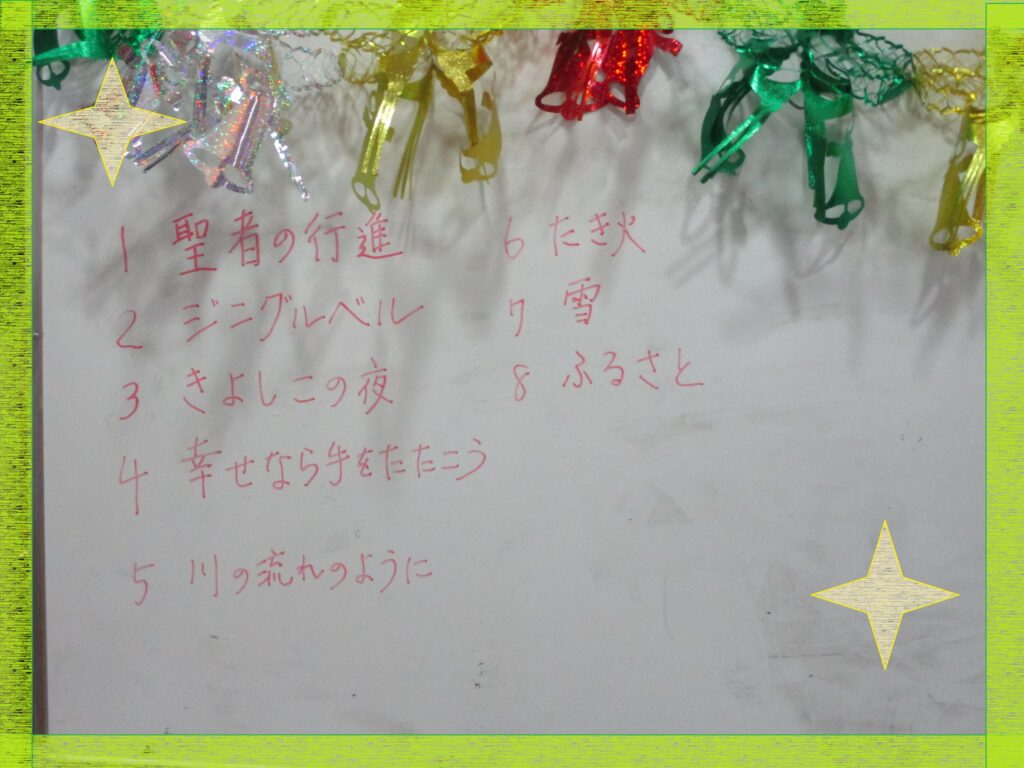 1 聖者の行進
2 ジングルベル
3 きよしこの夜
4 幸せなら手をたたこう
5 川の流れのように
6 たき火
7 雪
8 ふるさと